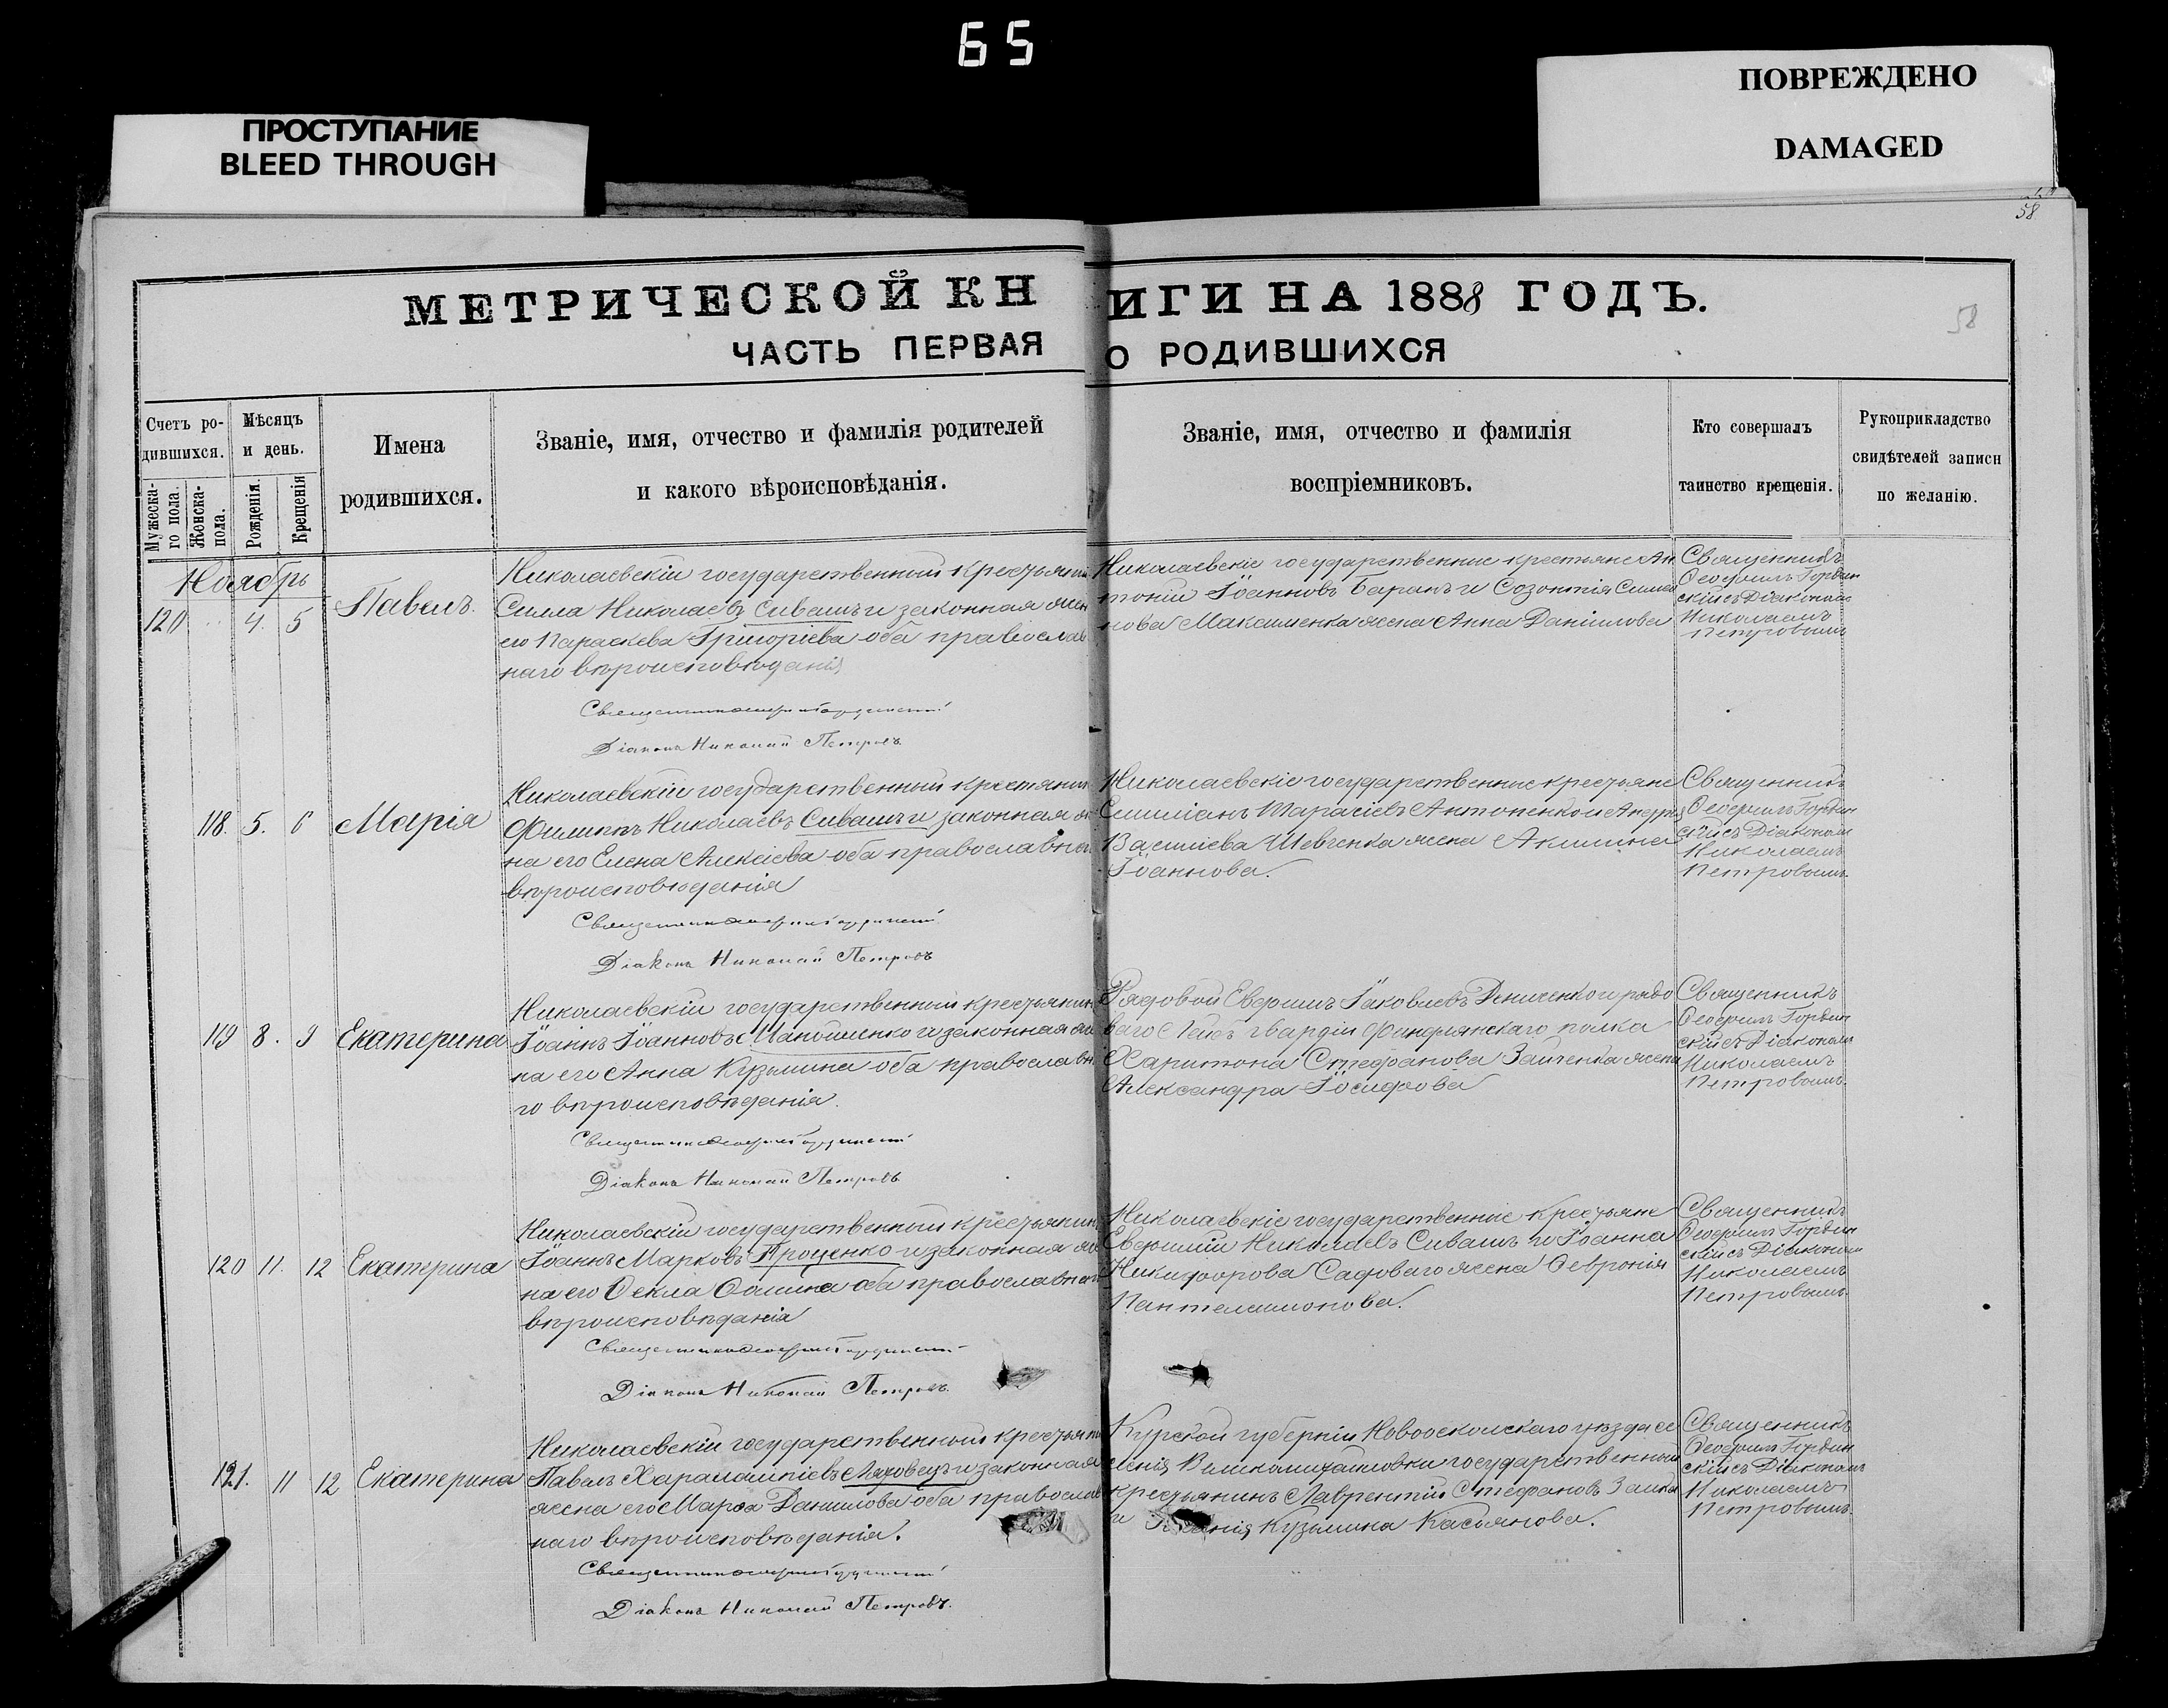 65
ПРОСТУПАНИЕ
BLEED THROUGH
ПОВРЕЖДЕНО
DAMAGED
58
58
МЕТРИЧЕСКОЙ КНИГИ НА 1888 ГОДЪ.
ЧАСТЬ ПЕРВАЯ О РОДИВШИХСЯ
Счетъ ро-
дившихся.
Мужеска-
го пола.
Женска-
пола.
Мѣсяцъ
и день.
Рожденія.
Крещенія
Имена
родившихся.
Званіе, имя, отчество и фамилія родителей
и какого вѣроисповѣданія.
Званіе, имя, отчество и фамилія
воспріемниковъ.
Кто совершалъ
таинство крещенія.
Рукоприкладство
свидѣтелей записи
по желанію.
Ноябрь
120 4. 5
Павелъ.
Николаевскій государственный крестьянин
Сила Николаевъ Сивашъ и законная жен
его Параскева Григоріева оба православ
наго вѣроисповѣданія
Діаконъ Николай Петровъ
Николаевскіе государственные крестьяне Ан
тоній Іоанновъ Баранъ и Созонтія Симо
нова Максименка жена Анна Даніилова
Священникъ
Ѳеофилъ Гордин
скій съ Діакономъ
Николаемъ
Петровымъ
118. 5. 6
Марія
Николаевскій государственный крестянин
Филиппъ Николаевъ Сивашъ и законная же
на его Елена Алексіева оба православна
вѣроисповѣданія
Діаконъ Николай Петровъ
Николаевскіе государственные крестьяне
Емиліанъ Тарасіевъ Антоненко и Андрея
Василіева Шевченка жена Акилина
Іоаннова.
Священникъ
Ѳеофилъ Гордин
скій съ Діакономъ
Николаемъ
Петровымъ
119 8. 9
Екатерина
Николаевскій государственный крестьянинъ
Іоаннъ Іоанновъ Маношенко и законная же
на его Анна Кузьмина оба православна
го вѣроисповѣданія.
Діаконъ Николай Петровъ
Рядовой Евфимъ Іаковлевъ Дениченко и рядо
ваго Лейбъ гвардіи Финдлянскаго полка
Харитона Стефанова Зайченка жена
Александра Іосифова
Священникъ
Ѳеофилъ Гордин
скій съ Діакономъ
Николаемъ
Петровымъ
120 11. 12
Екатерина
Николаевскій государственный крестьянин
Іоаннъ Марковъ Проценко и законная же
на его Ѳекла Ѳомина оба православнаго
вѣроисповѣданія
Діаконъ Николай Петровъ.
Николаевскіе государственные крестьяне
Евфимій Николаевъ Сивашъ и Іоанна
Никифорова Садоваго жена Ѳевронія
Пантелимонова.
Священникъ
Ѳеофилъ Гордин
скій съ Діакономъ
Николаемъ
Петровымъ
121. 11 12
Екатерина
Николаевскій государственный крестьянин
Павелъ Харалампіевъ Лядовецъ и законная
жена его Марѳа Даніилова оба православ
наго вѣроисповѣданія.
Діаконъ Николай Петровъ.
Курской губерніи Новооскольскаго уѣзда се
ленія Великомихайловки государственный
крестьянинъ Лаврентій Стефановъ
и Кузьмина Касьянова.
Священникъ
Ѳеофилъ Гордин
скій съ Діакономъ
Николаемъ
Петровымъ